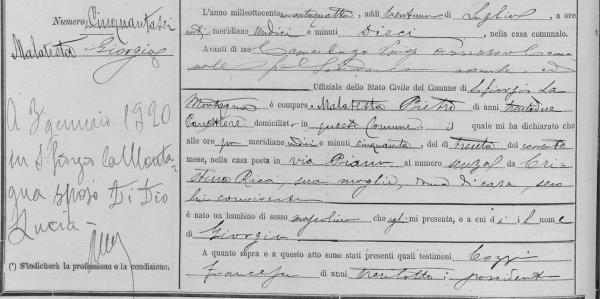 Numero Cinquantasei
Malatesta
Giorgio
A 3 gennaio 1920
in S. Giorgio la Monta-
gna sposò Di Dio
Lucia
(*) S'indicherà la professione o la condizione.
L'anno milleottocentonovantaquattro, addì trentuno di Luglio, a ore
anti meridiane undici e minuti dieci, nella casa comunale.
Avanti di me Luigi
assente ed
Uffiziale dello Stato Civile del Comune di S. Giorgio La
Montagna è comparso Malatesta Pietro, di anni trentadue
domiciliato in questo Comune, il quale mi ha dichiarato che
alle ore pomeridiane undici e minuti cinquanta, del dì trenta del corrente
mese, nella casa posta in via Piano al numero senza, da Cri-
stina Ricci, sua moglie, donna di casa, seco
lui convivente
è nato un bambino di sesso mascolino che egli mi presenta, e a cui dà il nome
di Giorgio
A quanto sopra e a questo atto sono stati presenti quali testimoni Cozzi
Francesco di anni trentotto, possidente